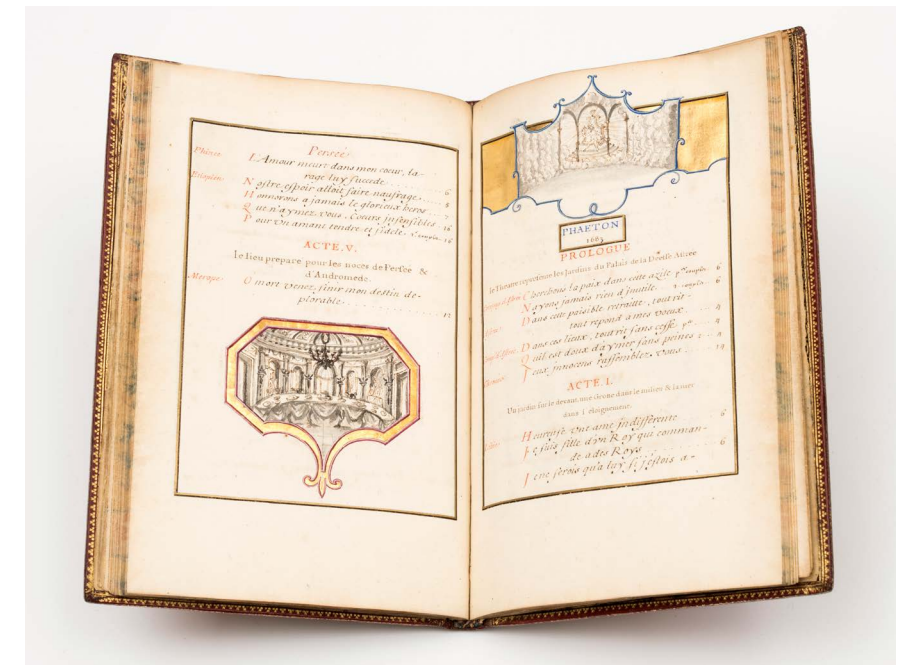 Persée
Phinée L'Amour meurt dans mon coeur, la-
rage luy succede 6
Ethiopien Nostre espoir alloit faire naufrage 8
Honnorons a jamais le glorieux heros 7
Que n'aymez vous, Coeurs insensibles 16
Pour un amant tendre et fidele 2 couplet 16
ACTE. V.
le lieu preparé pour les noces de Persée &
d'Andromede.
Merope O mort venez finir mon destin de-
plorable 17
PHAETON
PROLOGUE
le Theatre represente les Jardins du Palais de la Deesse Astrée
Cherchons la paix dans cette azile 6
N'ayons jamais rien d'inutile 6
Dans cette paisible retraitte, tout rit
tout repond a mes voeux 4
Dans ces lieux, tout rit sans cesse 4
Qu'il est doux d'aymer sans peines 4
Jeux innocens rassemblez vous 14
ACTE. I.
Un jardin sur le devant, une grotte dans le milieu & la mer
dans l'eloignement.
Heureuse une ame indifferente 6
Je suis fille d'un Roy qui comman-
de a des Roys 6
Je ne serois qu'a luy si j'estois a-